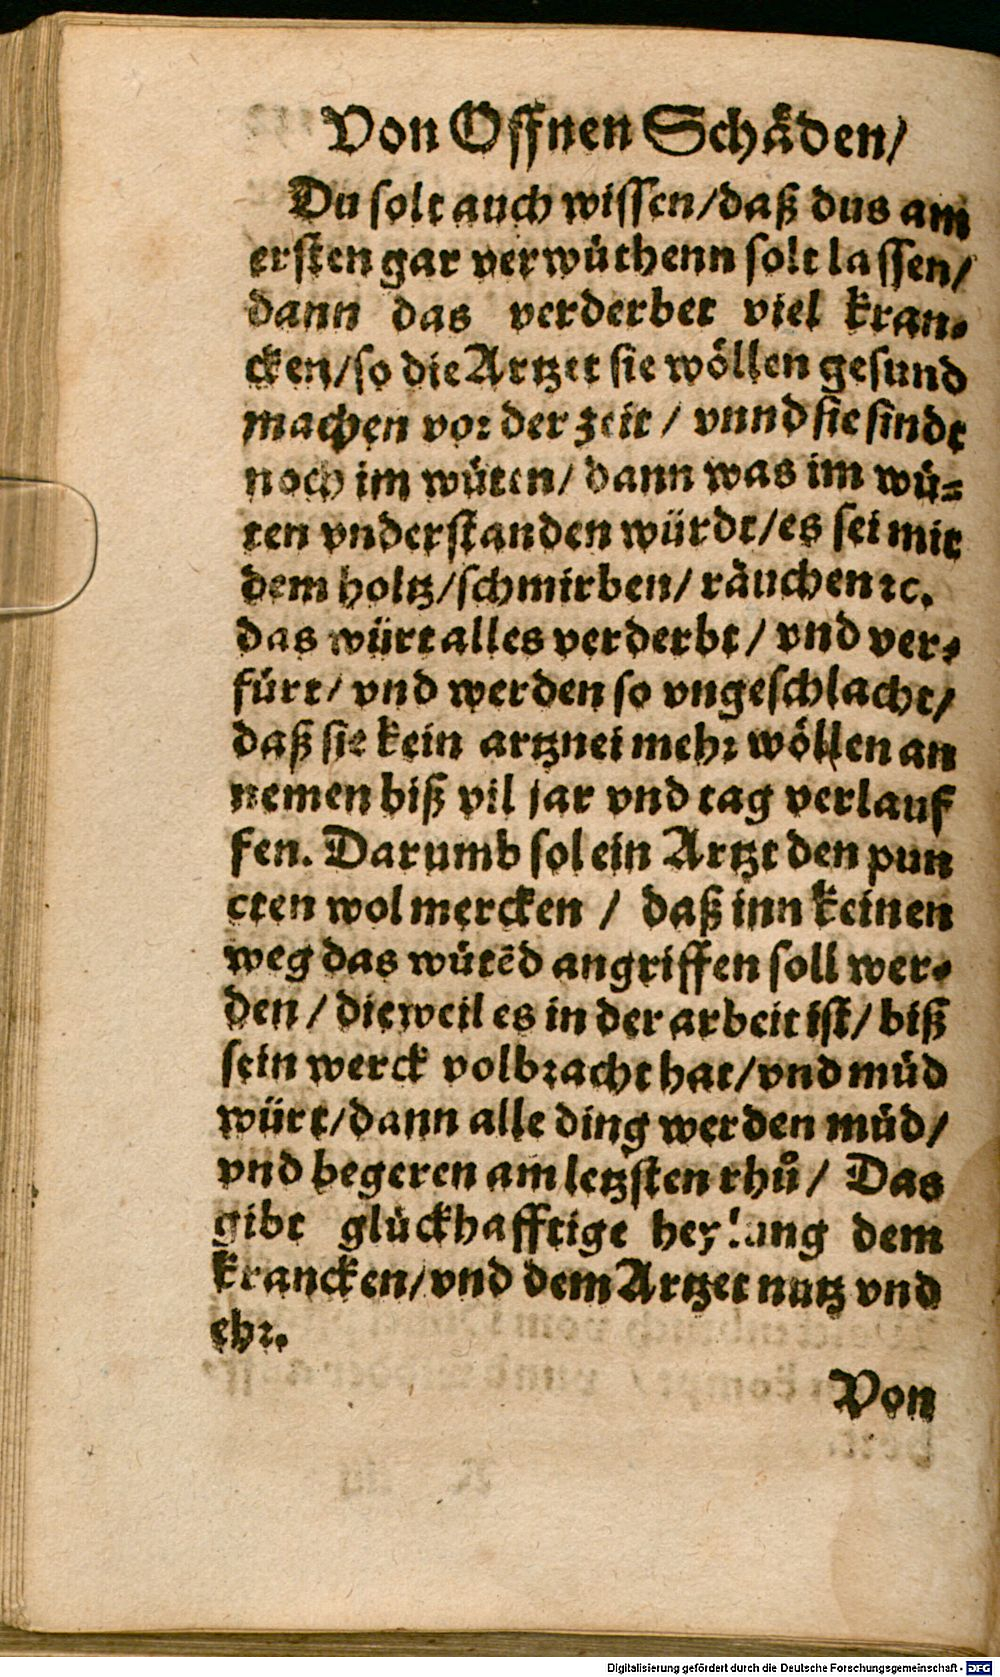 Von Offnen Schäden/
Du solt auch wissen/daß dus am
ersten gar verwüthenn solt lassen/
dann das verderbet viel kran-
cken/so die Artzet sie wöllen gesund
machen vor der zeit / vnnd sie sindt
noch im wüten/ dann was im wü-
ten vnderstanden würdt/es sei mit
dem holtz/schmirben/ räuchen ꝛc.
das würt alles verderbt / vnd ver-
fürt/ vnd werden so vngeschlacht/
daß sie kein artznei mehr wöllen an
nemen biß vil jar vnd tag verlauf
fen. Darumb sol ein Artzt den pun
cten wol mercken / daß inn keinen
weg das wütẽd angriffen soll wer-
den / dieweil es in der arbeit ist/ biß
sein werck volbracht hat/vnd müd
würt/dann alle ding werden müd/
vnd begeren am letzsten rhů/ Das
gibt glückhafftige heylung dem
krancken/vnd dem Artzet nutz vnd
ehr.
Von
Digitalisierung gefördert durch die Deutsche Forschungsgemeinschaft - DFG